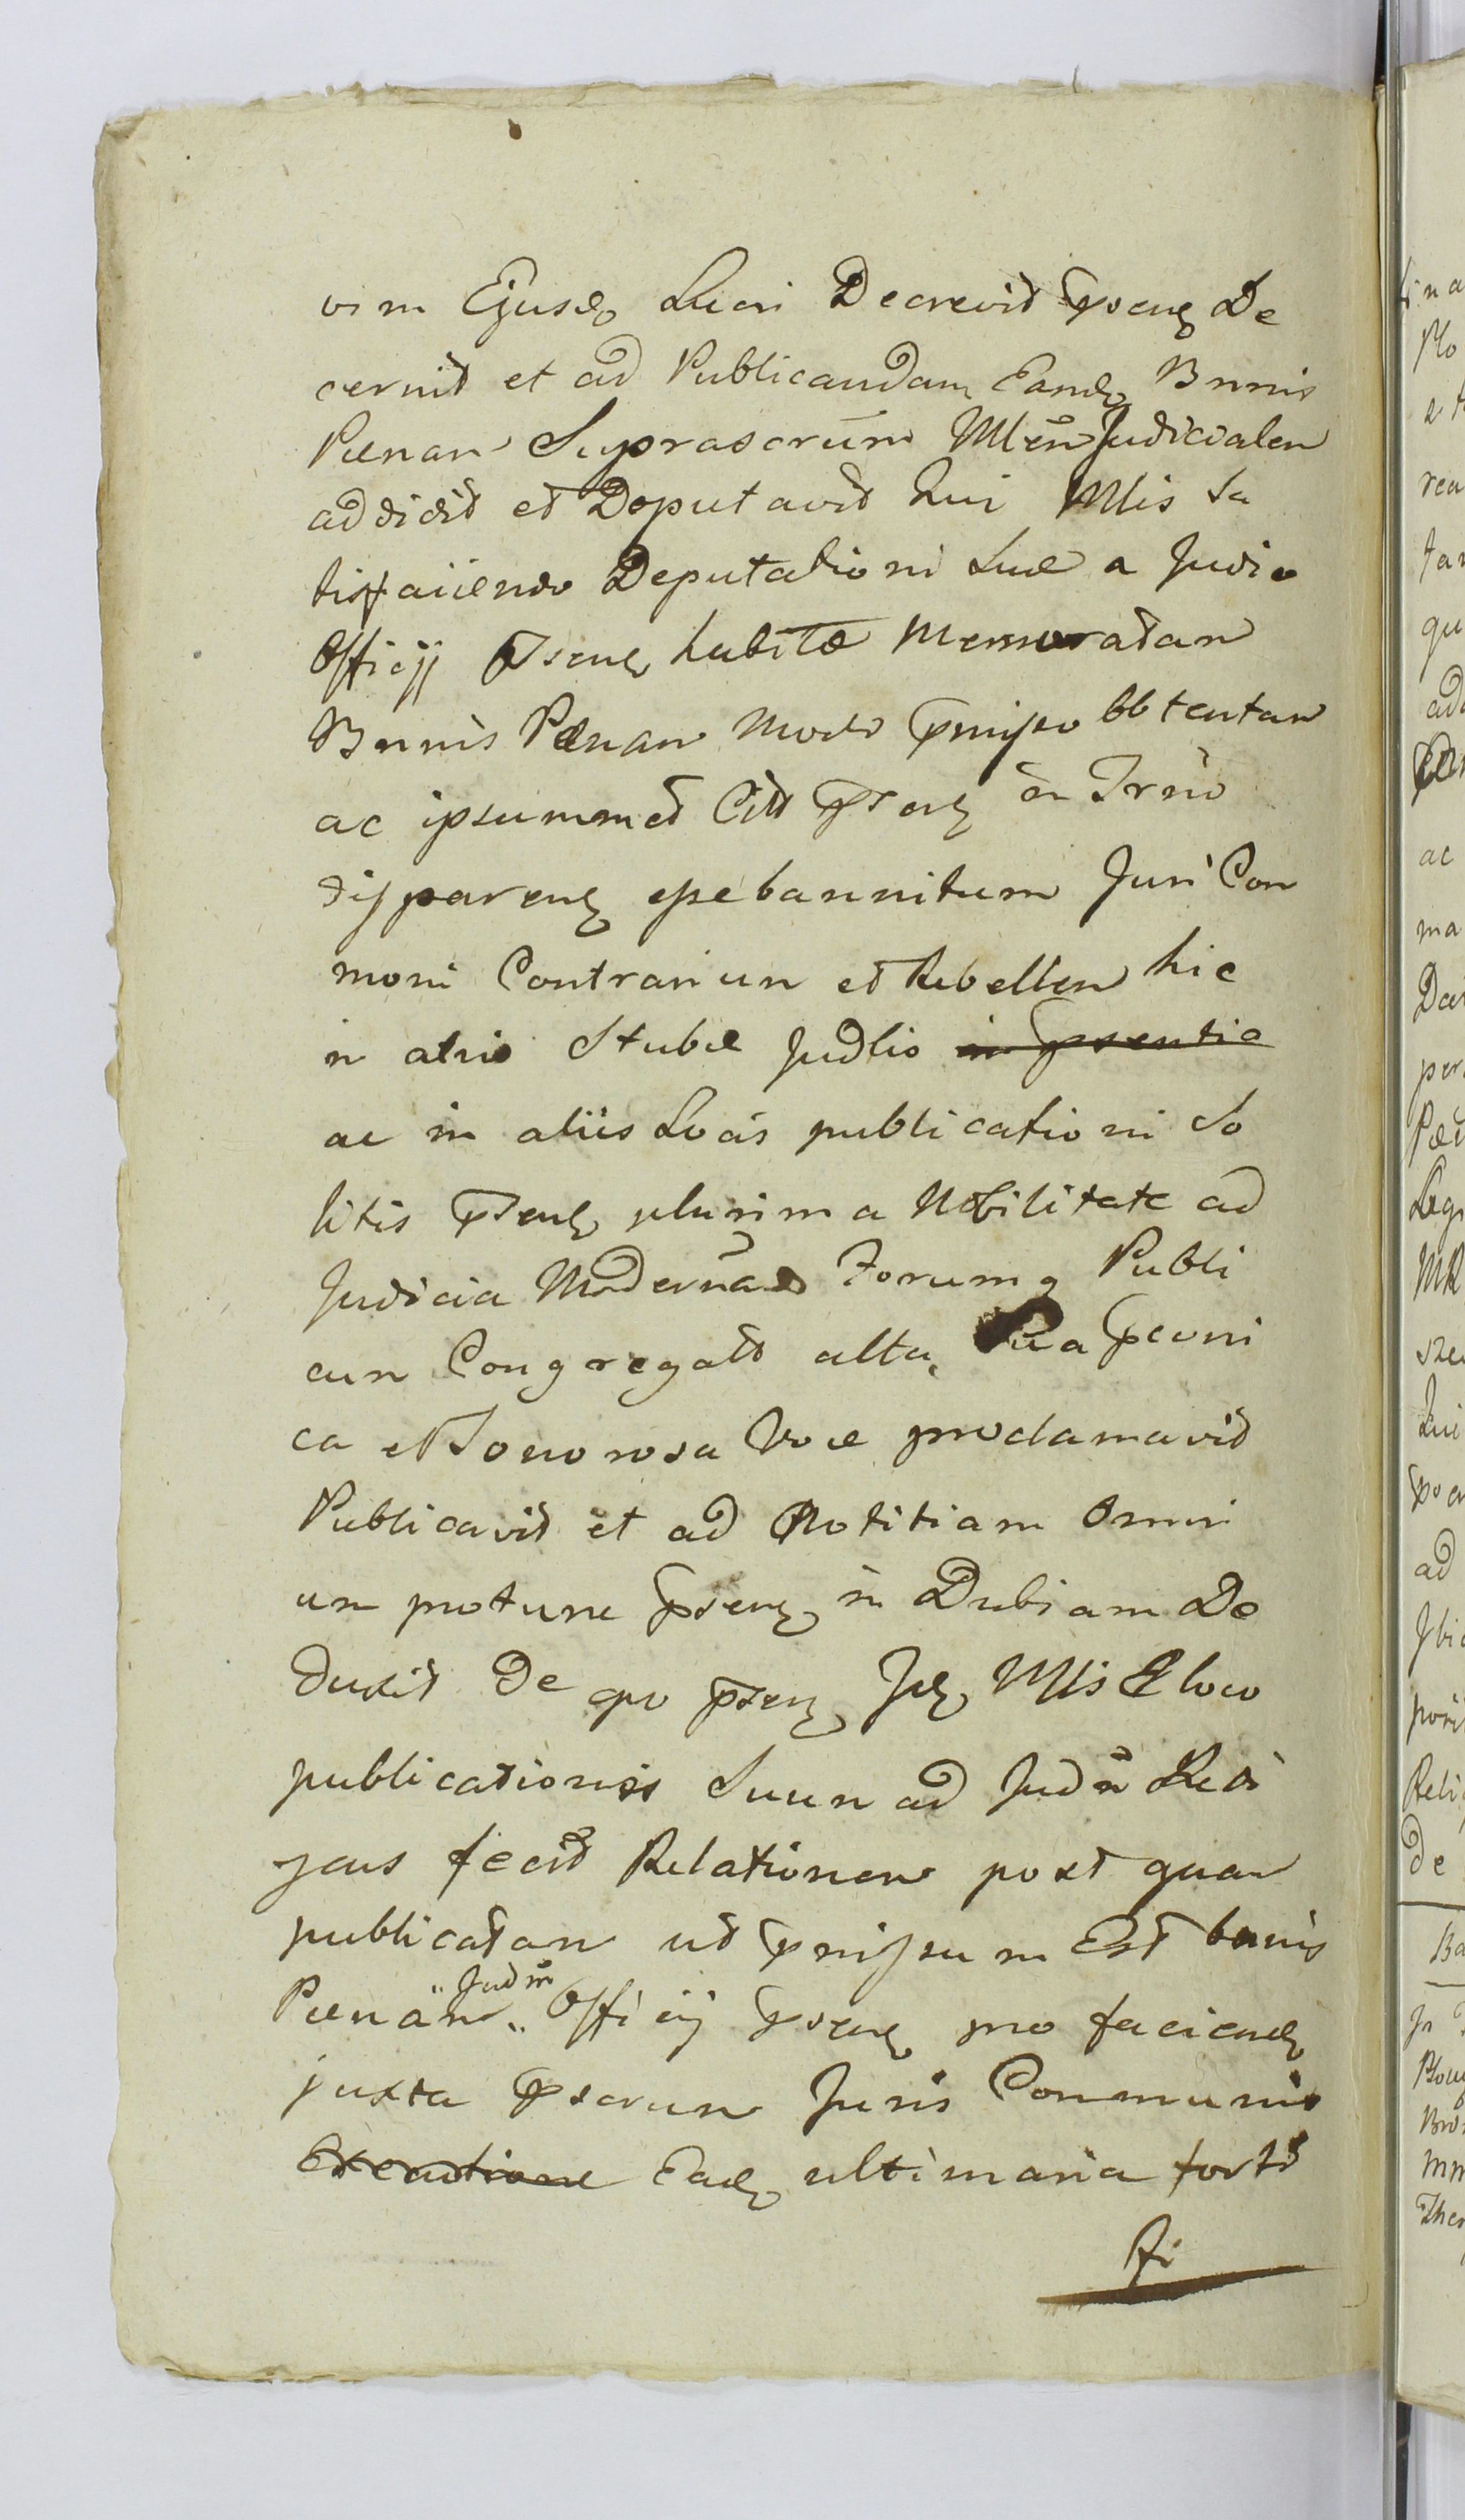 vim Ejusd Lucri Decrevit pseng De
cernit et ad Publicandam Eand Bnnis
Pænam Suprascrium Mlem Judicialem
addidit et Deputavit Qui Mlis Sa
tisfaciendo Deputationi Suæ a Judio
Officij pseng habitæ Memoratam
Bnnis Pænam modo pmisso obtentam
ac ipsummet Citt pseng in Trno
dispareng esse bannitum Juri Com
moni Contrarium et Rebellem hic
in atrio Stubæ Judlis in psentia
ac in aliis Locis publicationi So
litis pseng plurima Nobilitate ad
Judicia Moderna Forumq Publi
cum Congregatt alta pconi
ca et Sonorosa Voce proclamavit
Publicavit et ad Notitiam Omni
um protunc pseng in Dubiam De
duxit De quo pseng Id Mlis E loco
publicationis Suum ad Judm Redi
jens fecit Relationem post quam
publicatam ut pmissum Est bannis
Pænam Judm Officij pseng pro faciend
juxta pscrum Juris Communis
Executione Ead ultimaria forti
Ri
ina
Plo
rea
qu
ac
ma
per
ad
de